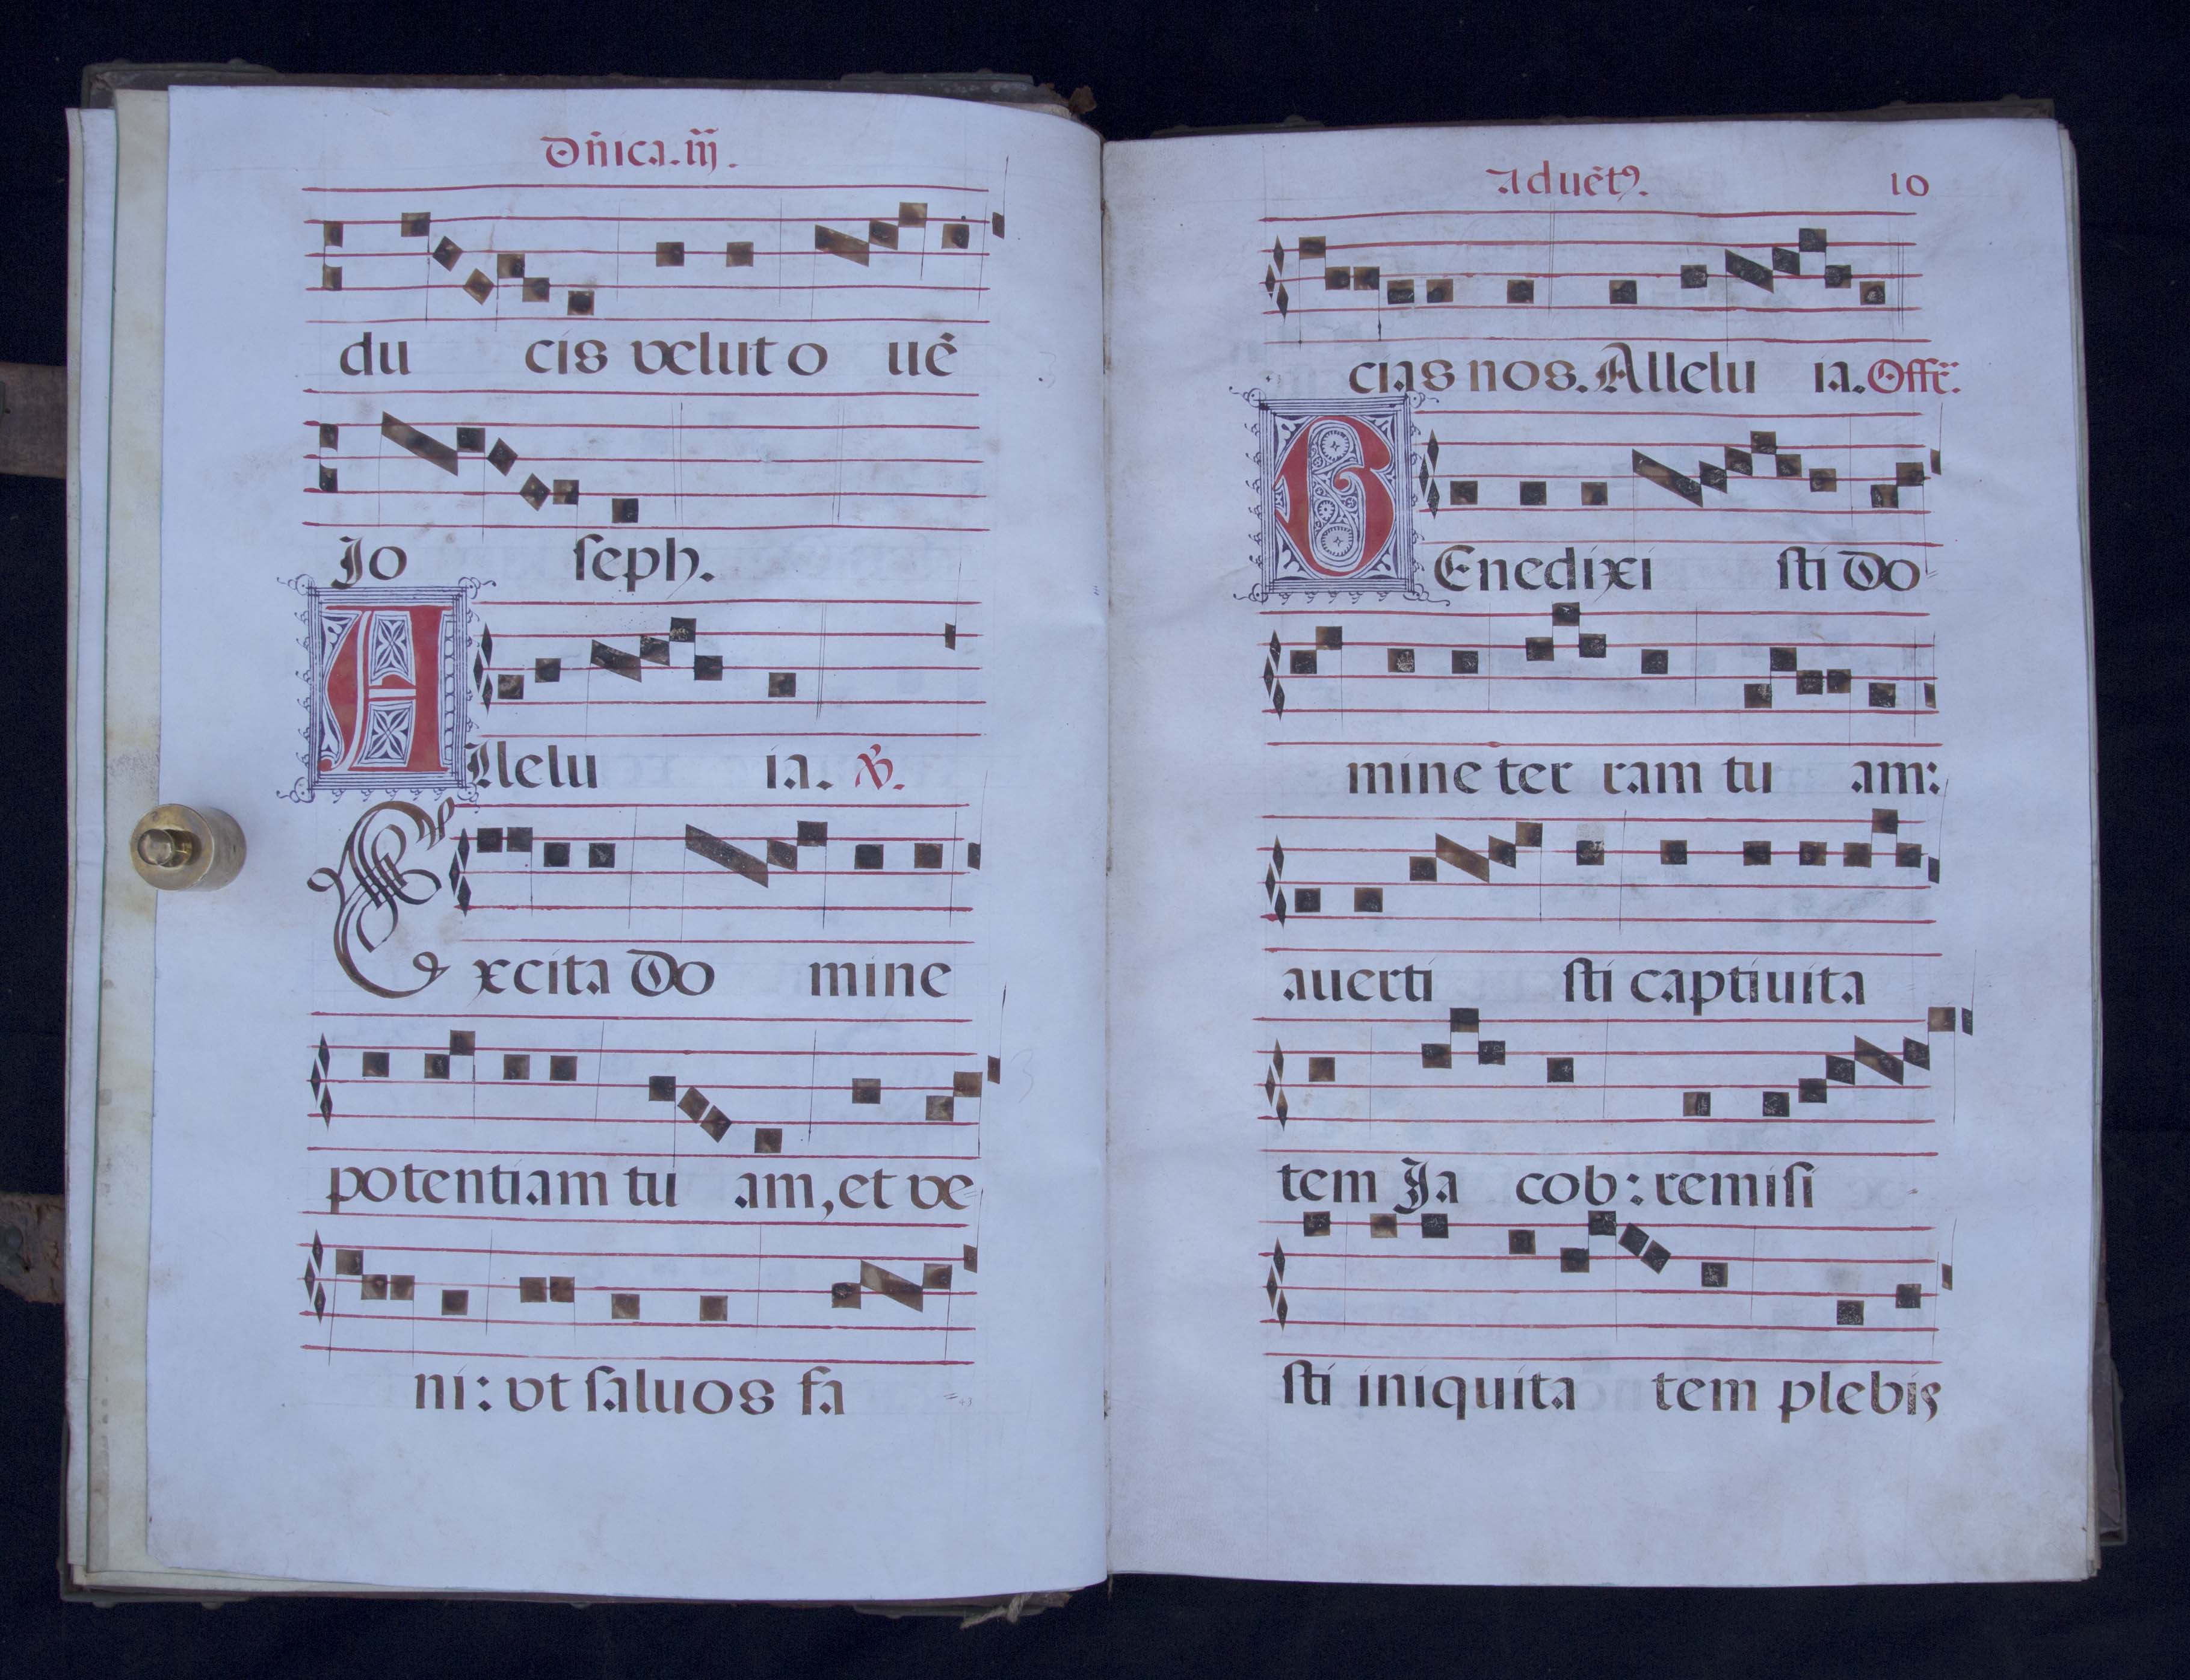 Dñica. iij.
du cis velut o uē
Jo ſeph.
Allelu ia. ℣.
Excita Do mine
potentiam tu am, et ve
ni: vt ſaluos fa
Aduēt9. 10
cias nos. Allelu ia. Offr̄.
BEnedixi ſti Do
mine ter ram tu am:
auerti ſti captiuita
tem Ja cob: remiſi
ſti iniquita tem plebis